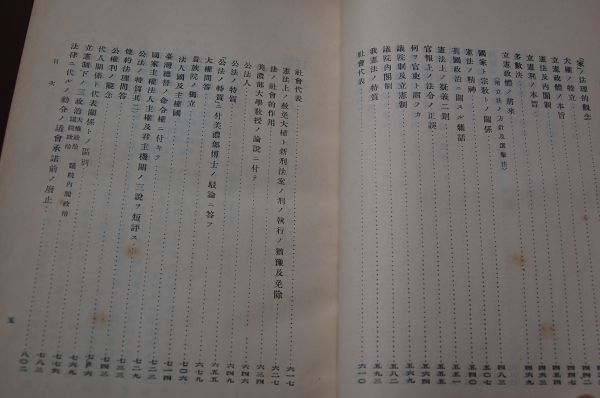 「家」ノ法理的觀念
大權ノ特立
立憲政體ノ本旨
立憲制ノ本旨
憲法及內閣制
多數決
立憲政體ノ將來
國家ト宗敎トノ關係 五〇七
憲法ノ精神
英國政治ニ關スル雜話 五五一
憲法上ノ疑義二則
官報上ノ法令ノ正誤
何ヲ官吏ト謂フカ
議院制及立憲制 五八二
議院內閣制
我憲法ノ特質 五九三
社會代表 六一〇
社會代表 六一七
憲法上ノ赦免大權ト新刑法案ノ刑ノ執行ノ猶豫及免除 六二七
法ノ社會的作用 六三四
美濃部大學敎授ノ論說ニ付テ
公法人 六四九
公法ノ特質 六五五
「公法ノ特質」ニ付美濃部博士ノ駁論ニ答フ 六六四
大權問答 六七九
貴族院ノ獨立 六九七
法人國及主權國 七〇六
臺灣總督ノ命令權ニ付キテ
國家主權法人主權及君主機關ノ三說ヲ短評ス 七二九
公法ノ特質其二
條約法理問答 七三三
公權利ノ觀念 七四三
代人關係ト代表關係トノ區別
立憲制下ノ三政治 大權政治 議院政治 議院內閣政治 七七六
法律ニ代ルノ勅令ノ議會承諾前ノ廢止 七八三
八〇二
目次
五